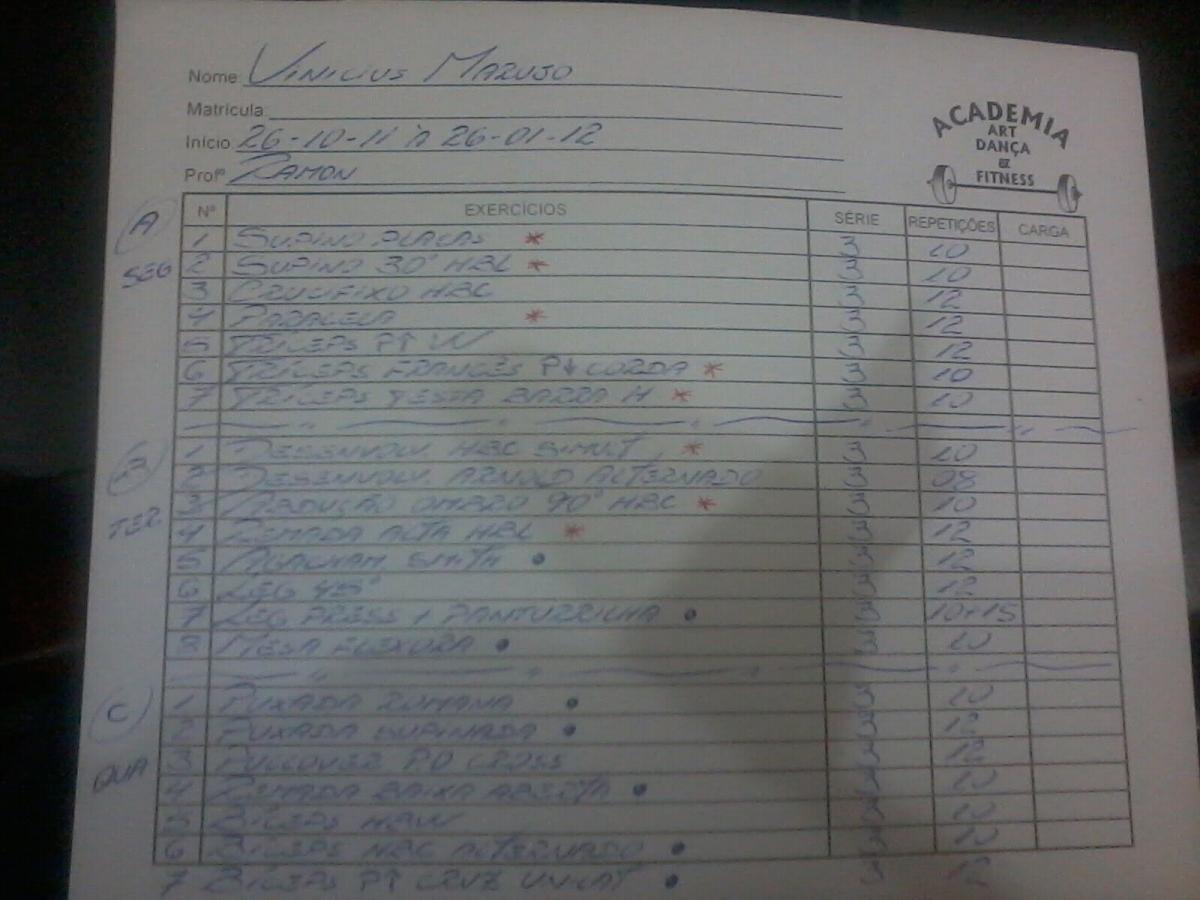 Nome: VINICIUS MARUJO
Matrícula:
Início 26-10-11 À 26-01-12
Profº RAMON
ACADEMIA
ART
DANÇA
&
FITNESS
Nº EXERCÍCIOS SÉRIE REPETIÇÕES CARGA
A
SEG
1 SUPINO PLACAS * 3 10
2 SUPINO 30º HBC * 3 10
3 CRUCIFIXO HBC 3 12
4 PARALELA * 3 12
5 TRÍCEPS P↑ W 3 12
6 TRÍCEPS FRANCÊS P↓ CORDA * 3 10
7 TRÍCEPS TESTA BARRA H * 3 10
B
TER
1 DESENVOLV HBC SIMULT * 3 10
2 DESENVOLV ARNOLD ALTERNADO 3 08
3 ABDUÇÃO OMBRO 90º HBC * 3 10
4 REMADA ALTA HBC * 3 12
5 AGACHAM. SMITH • 3 12
6 LEG 45º 3 12
7 LEG PRESS + PANTURRILHA • 3 10+15
8 MESA FLEXORA • 3 10
C
QUA
1 PUXADA ROMANA • 3 10
2 PUXADA SUPINADA • 3 12
3 PULLOVER CROSS 3 12
4 REMADA BAIXA ABERTA • 3 10
5 BÍCEPS HBW 3 10
6 BÍCEPS HBC ALTERNADO • 3 10
7 BÍCEPS P↑ CRUZ UNILAT • 3 12